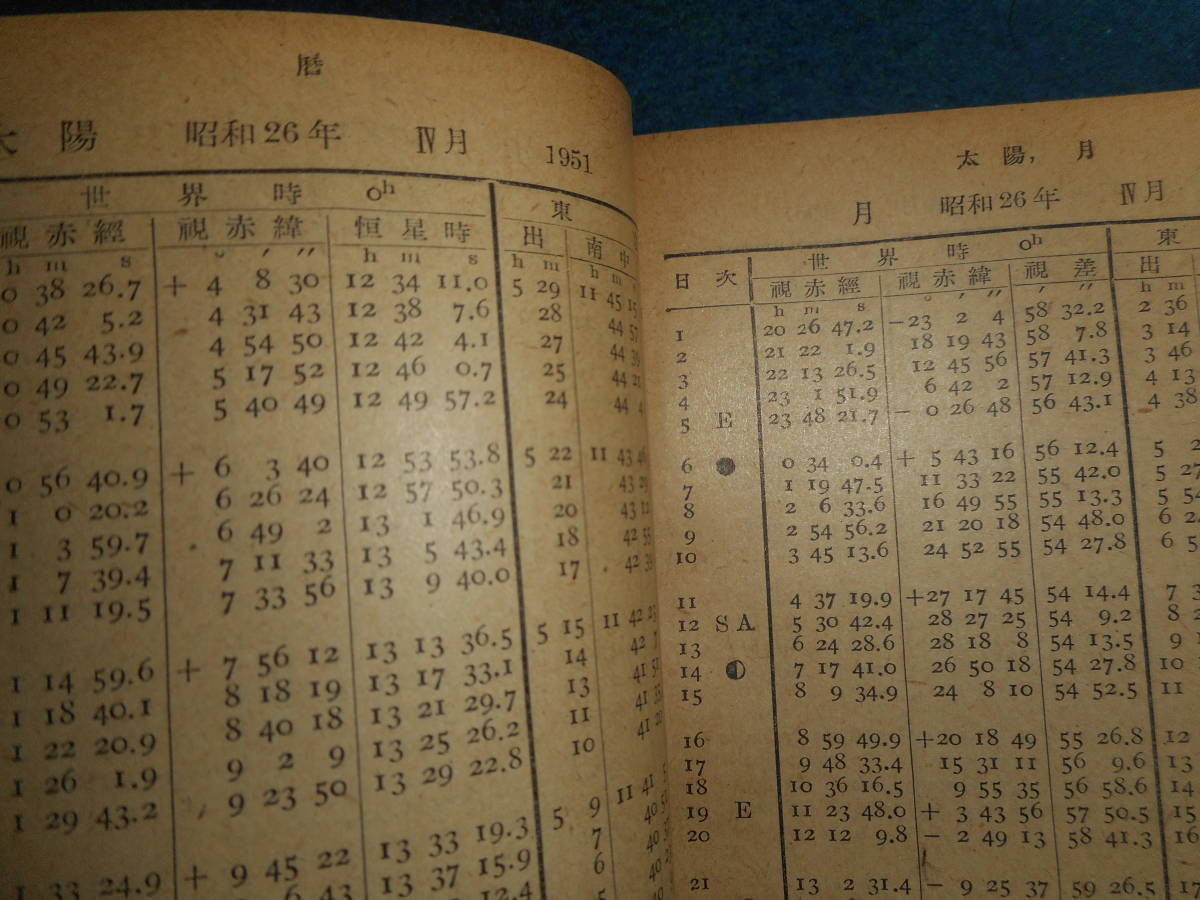 暦
太陽 昭和26年 Ⅳ月 1951
世界時 0h 東
視赤經 視赤緯 恒星時 出 南中
h m s ° ′ ″ h m s h m h m
0 38 26.7 + 4 8 30 12 34 11.0 5 29 11 45 15
0 42 5.2 4 31 43 12 38 7.6 28 44 57
0 45 43.9 4 54 50 12 42 4.1 27 44 39
0 49 22.7 5 17 52 12 46 0.7 25 44 21
0 53 1.7 5 40 49 12 49 57.2 24 44
0 56 40.9 + 6 3 40 12 53 53.8 5 22 11 43
1 0 20.2 6 26 24 12 57 50.3 21 43
1 3 59.7 6 49 2 13 1 46.9 20 43
1 7 39.4 7 11 33 13 5 43.4 18 42
1 11 19.5 7 33 56 13 9 40.0 17 42
1 14 59.6 + 7 56 12 13 13 36.5 5 15 11 42
1 18 40.1 8 18 19 13 17 33.1 14 42
1 22 20.9 8 40 18 13 21 29.7 13 41
1 26 1.9 9 2 9 13 25 26.2 11 41
1 29 43.2 9 23 50 13 29 22.8 10 41
1 33 24.9 + 9 45 22 13 33 19.3 5 9 11 41
6 43 13 37 15.9 7 40
12.4 6 40
太陽, 月
月 昭和26年 Ⅳ月
日次 世界時 0h 東
視赤經 視赤緯 視差 出
h m s ° ′ ″ ′ ″ h m
1 20 26 47.2 −23 2 4 58 32.2 2 36
2 21 22 1.9 18 19 43 58 7.8 3 14
3 22 13 26.5 12 45 56 57 41.3 3 46
4 23 1 51.9 6 42 2 57 12.9 4 13
5 E 23 48 21.7 − 0 26 48 56 43.1 4 38
6 ● 0 34 0.4 + 5 43 16 56 12.4 5
7 1 19 47.5 11 33 22 55 42.0 5 27
8 2 6 33.6 16 49 55 55 13.3 5
9 2 54 56.2 21 20 18 54 48.0 6
10 3 45 13.6 24 52 55 54 27.8 6
11 4 37 19.9 +27 17 45 54 14.4 7
12 S A 5 30 42.4 28 27 25 54 9.2 8
13 6 24 28.6 28 18 8 54 13.5 9
14 ◐ 7 17 41.0 26 50 18 54 27.8 10
15 8 9 34.9 24 8 10 54 52.5 11
16 8 59 49.9 +20 18 49 55 26.8 12
17 9 48 33.4 15 31 11 56 9.6 13
18 10 36 16.5 9 55 35 56 58.6 14
19 E 11 23 48.0 + 3 43 56 57 50.5 15
20 12 12 9.8 − 2 49 13 58 41.3 16
21 13 2 31.4 − 9 25 37 59 26.5 17